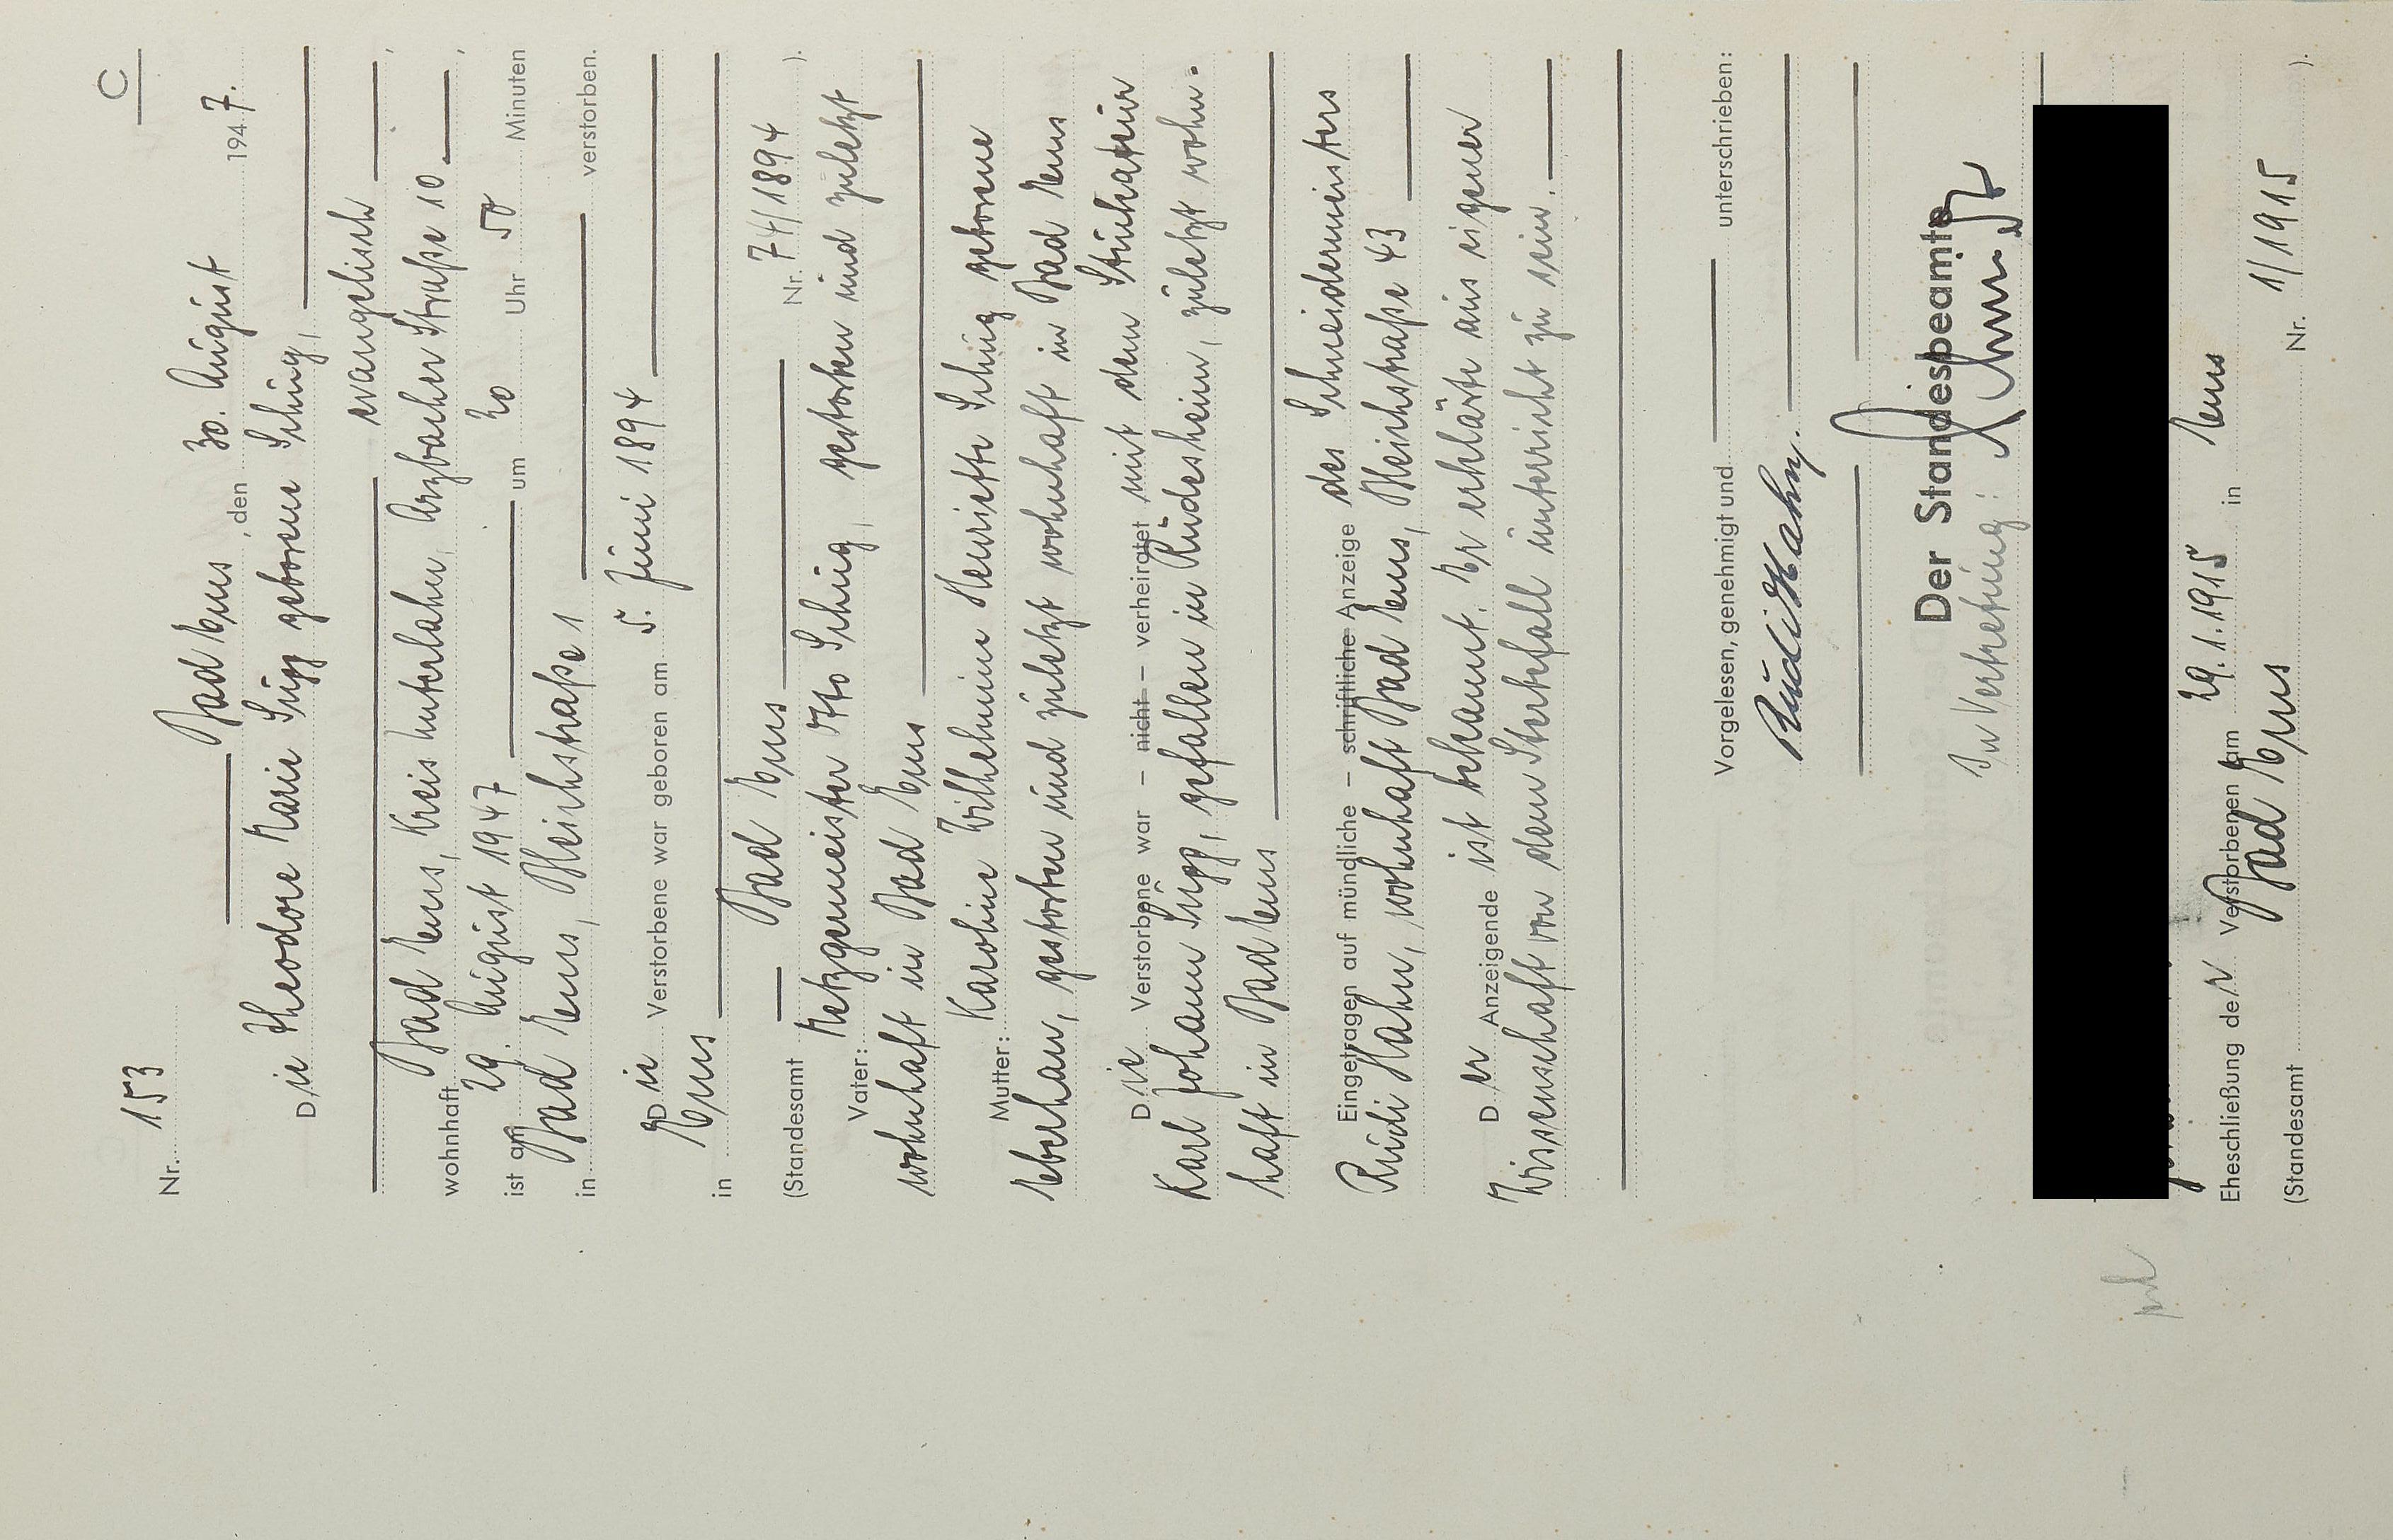 C
Nr. 153
Bad Ems, den 30. August 1947.
Die Theodore Marie Supp geborene Schug,
evangelisch
wohnhaft Bad Ems, Kreis Unterlahn, Arzbacher Straße 10
ist am 29. August 1947 um 20 Uhr 50 Minuten
in Bad Ems, Bleichstraße 1 verstorben.
Die Verstorbene war geboren am 5. Juni 1894
in Ems
(Standesamt Bad Ems Nr. 74/1894).
Vater: Metzgermeister Otto Schug, gestorben und zuletzt
wohnhaft in Bad Ems
Mutter: Karoline Wilhelmine Henriette Schug geborene
Eberhan, gestorben und zuletzt wohnhaft in Bad Ems
Die Verstorbene war – nicht – verheiratet mit dem Stukkateur
Karl Johann Supp, gefallen in Rüdesheim, zuletzt wohn-
haft in Bad Ems
Eingetragen auf mündliche – schriftliche Anzeige des Schneidermeisters
Rudi Hahn, wohnhaft Bad Ems, Bleichstraße 43
Der Anzeigende ist bekannt. Er erklärte aus eigener
Wissenschaft von dem Sterbefall unterrichtet zu sein.
Vorgelesen, genehmigt und unterschrieben:
Rudi Hahn.
Der Standesbeamte
In Vertretung:
Eheschließung der Verstorbenen am 29.1.1915 in Ems
(Standesamt Bad Ems Nr. 1/1915).